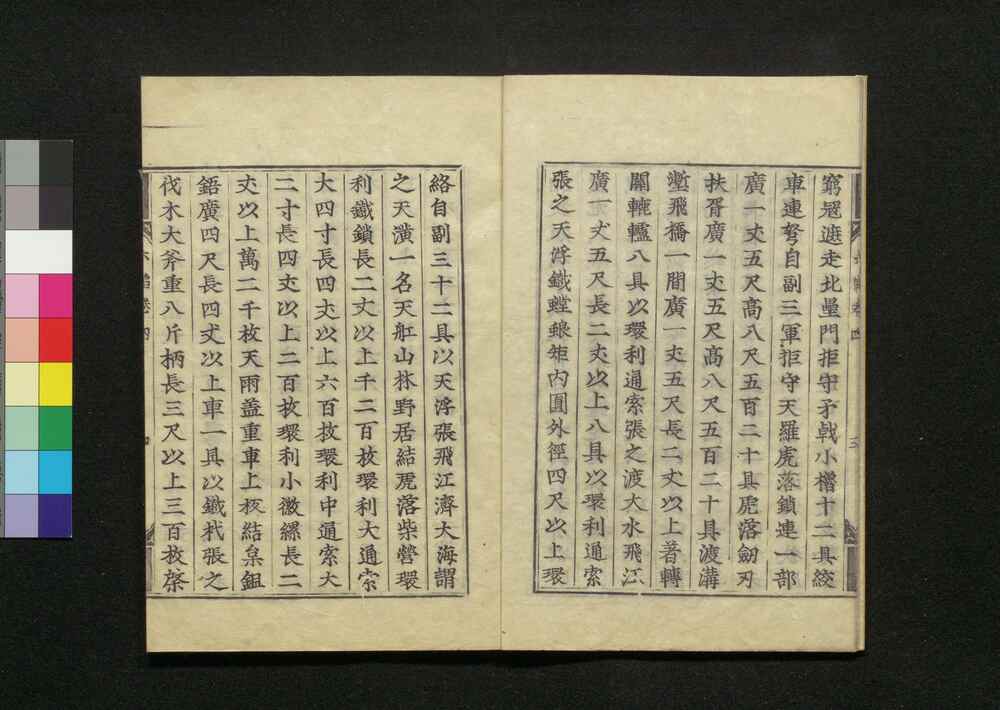 窮寇遮走北壘門拒守矛戟小櫓十二具絞
車連弩自副三軍拒守天羅虎落鎖連一部
廣一丈五尺高八尺五百二十具虎落劒刃
扶胥廣一丈五尺高八尺五百二十具渡溝
塹飛橋一間廣一丈五尺長二丈以上著轉
關轆轤八具以環利通索張之渡大水飛江
廣一丈五尺長二丈以上八具以環利通索
張之天浮鐵螳蜋矩內圓外徑四尺以上環
絡自副三十二具以天浮張飛江濟大海謂
之天潢一名天舡山林野居結虎落柴營環
利鐵鎖長二丈以上千二百枚環利大通索
大四寸長四丈以上六百枚環利中通索大
二寸長四丈以上二百枚環利小徽縲長二
丈以上萬二千枚天雨盖重車上板結枲鉏
鋙廣四尺長四丈以上車一具以鐵杙張之
伐木大斧重八斤柄長三尺以上三百枚棨